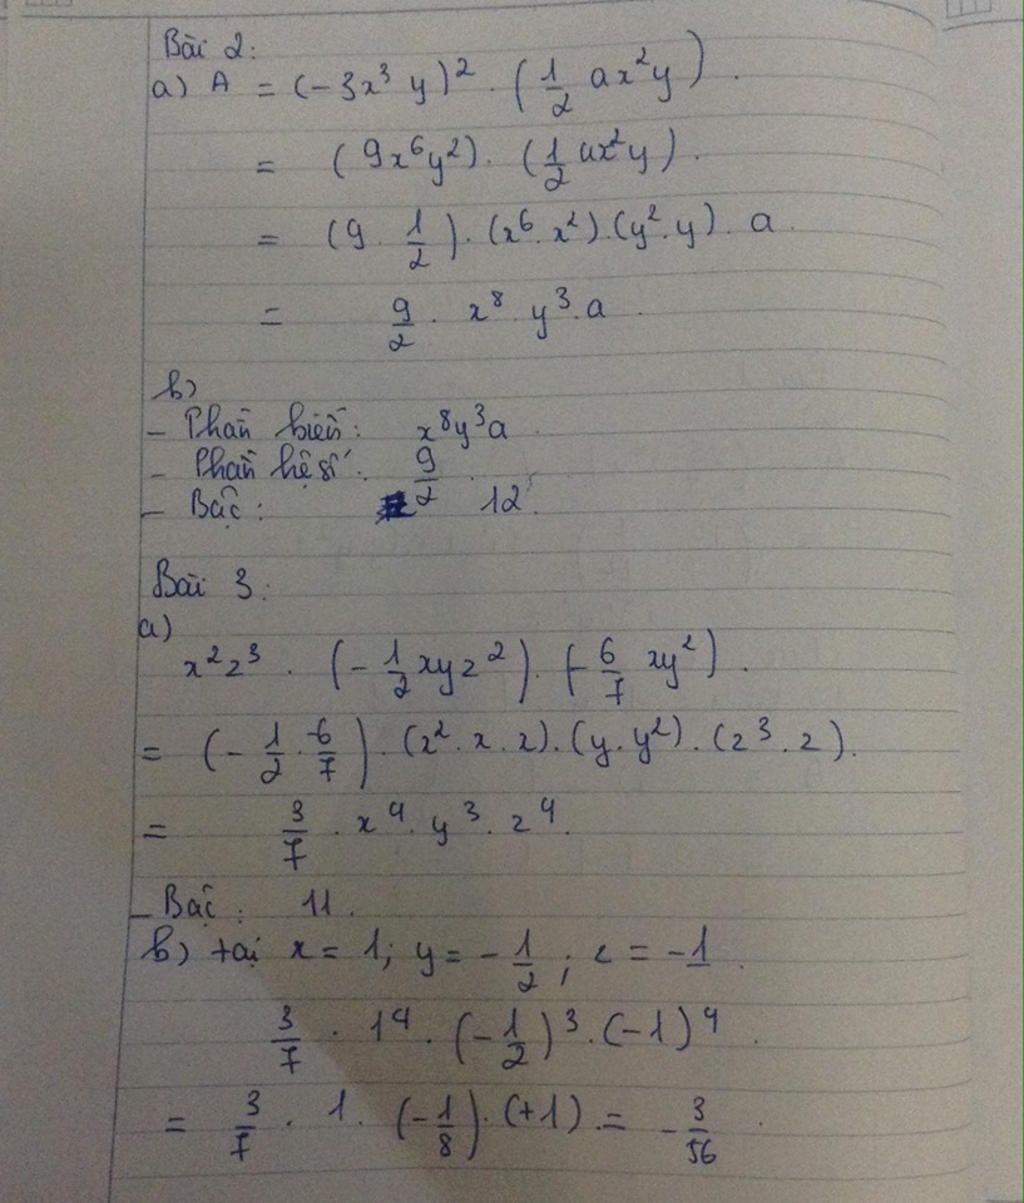 Bài 2:
a) A = (-3x³ y)² . (1/2 ax²y) .
= (9x⁶y²) . (1/2 ax²y) .
= (9 . 1/2) . (x⁶ . x²) . (y² . y) . a .
= 9/2 . x⁸ . y³ . a .
b)
- Phần biến: x⁸y³a .
- Phần hệ số: 9/2 .
- Bậc: 12 .
Bài 3:
a)
x²z³ . (-1/2 xyz²) . (-6/7 xy²) .
= (-1/2 . -6/7) . (x² . x . x) . (y . y²) . (z³ . z) .
= 3/7 . x⁴ . y³ . z⁴ .
- Bậc : 11 .
b) tại x = 1; y = -1/2 ; z = -1 .
3/7 . 1⁴ . (-1/2)³ . (-1)⁴ .
= 3/7 . 1 . (-1/8) . (+1) . = -3/56 .